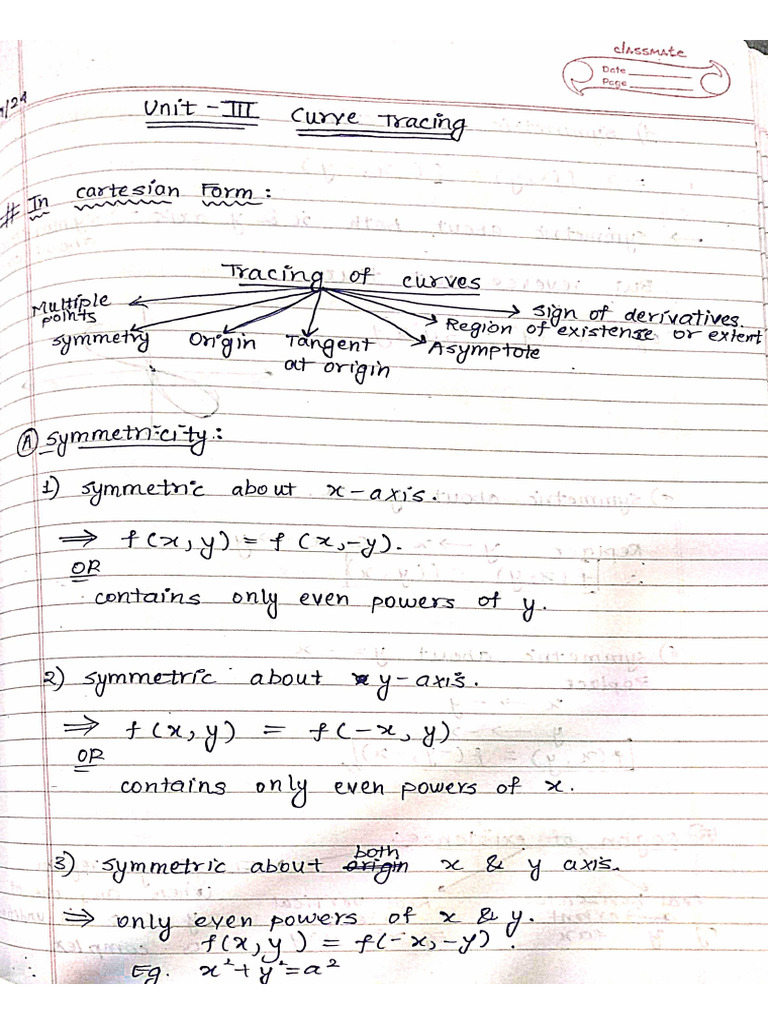 classmate
Date
Page
/24
Unit - III Curve Tracing
# In cartesian Form:
Tracing of curves
Multiple points
symmetry
Origin
Tangent at origin
Asymptote
Region of existense or extent
Sign of derivatives.
(A) symmetricity:
1) symmetric about x-axis.
⇒ f(x,y) = f(x,-y).
OR
contains only even powers of y.
2) symmetric about y-axis.
⇒ f(x,y) = f(-x,y)
OR
contains only even powers of x.
3) symmetric about both x & y axis.
⇒ only even powers of x & y.
f(x,y) = f(-x,-y).
Eg. x²+y²=a²